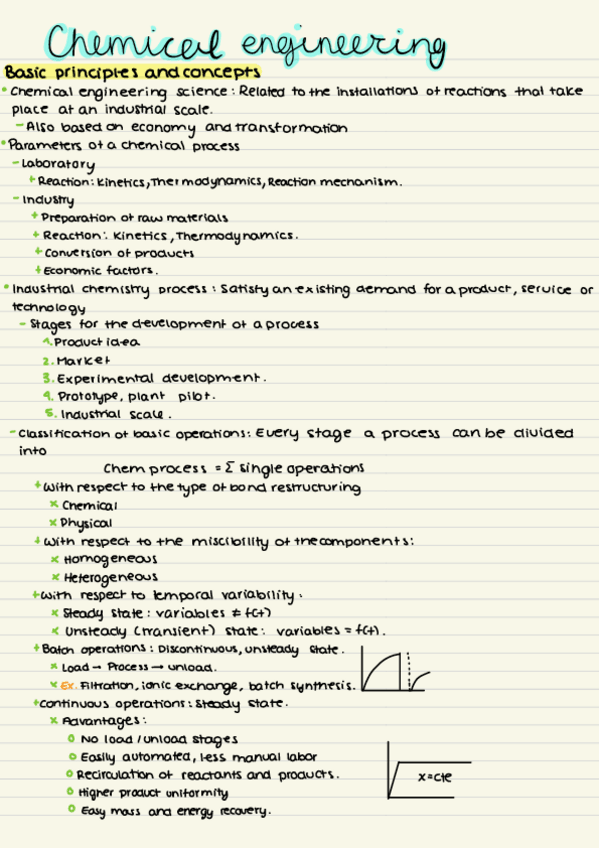 Chemical engineering
Basic principles and concepts
• Chemical engineering science: Related to the installations of reactions that take
place at an industrial scale.
- Also based on economy and transformation
• Parameters of a chemical process
- Laboratory
+ Reaction: Kinetics, Thermodynamics, Reaction mechanism.
- Industry
+ Preparation of raw materials
+ Reaction: Kinetics, Thermodynamics.
+ Conversion of products
+ Economic factors.
• Industrial chemistry process: Satisfy an existing demand for a product, service or
technology
- Stages for the development of a process
1. Product idea
2. Market
3. Experimental development.
4. Prototype, plant pilot.
5. Industrial scale.
- Classification of basic operations: Every stage a process can be divided
into
Chem process = Σ single operations
+ With respect to the type of bond restructuring
x Chemical
x Physical
+ With respect to the miscibility of the components:
x Homogeneous
x Heterogeneous
+ With respect to temporal variability:
x Steady state: variables ≠ f(t)
x Unsteady (transient) state: variables = f(t).
+ Batch operations: Discontinuous, unsteady state.
x Load → Process → unload.
x Ex. Filtration, ionic exchange, batch synthesis.
+ Continuous operations: Steady state.
x Advantages:
o No load/unload stages
o Easily automated, less manual labor
o Recirculation of reactants and products.
x=cte
o Higher product uniformity
o Easy mass and energy recovery.